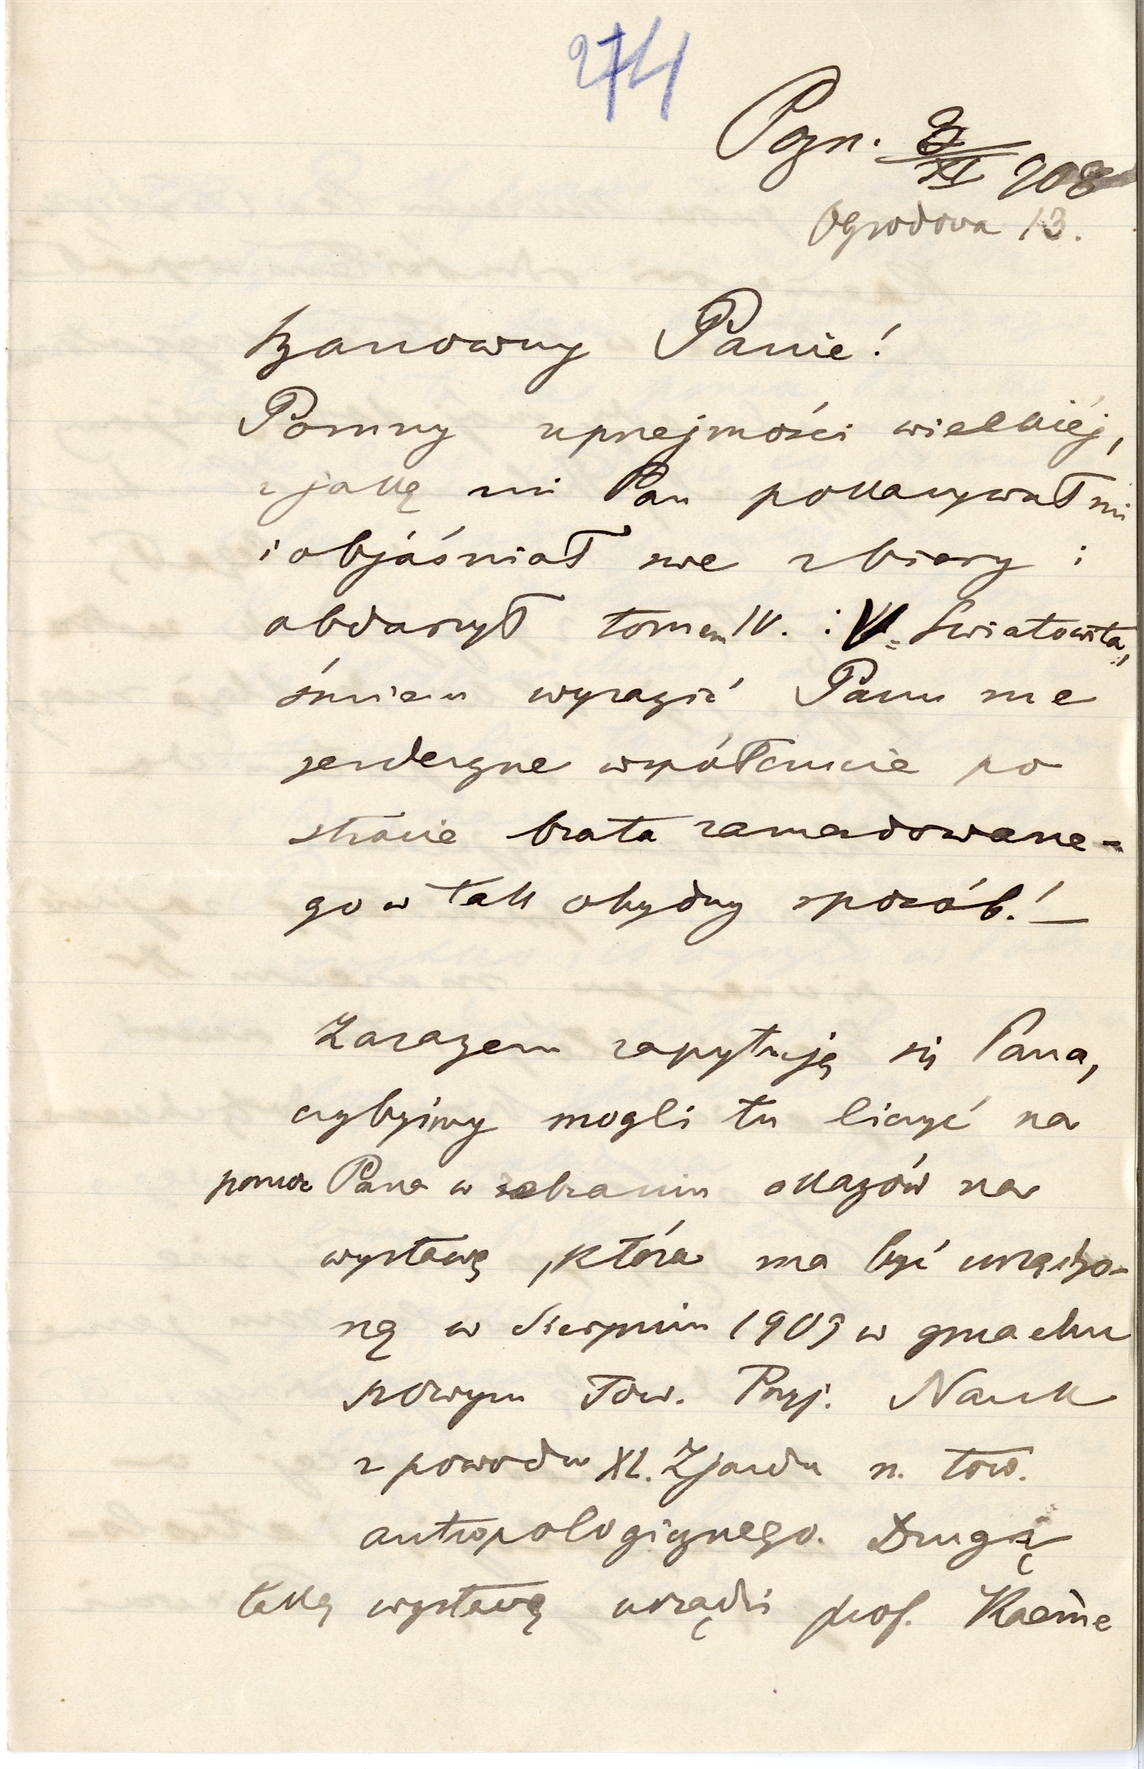 274
Pozn. 3/XI 908
Ogrodowa 13.
Szanowny Panie!
Pomny uprzejmości wielkiéj,
z jaką mi Pan pokazywał mi
i objáśniał swe zbiory i
obdarzył tomem IV. i V. Swiatowita,
śmiem wyrazić Panu me
serdeczne współczucie po
stracie brata zamordowane-
go w tak ohydny sposób! —
Zarazem zapytuję się Pana,
czybyśmy mogli tu liczyć na
pomoc Pana w zebraniu okazów na
wystawę, która ma być urządzo-
ną w Sierpniu 1909 w gmachu
nowym Tow. Przyj. Nauk
z powodu XL. Zjazdu n. tow.
antropologicznego. Drugą
taką wystawę urządzi prof. Kaemme